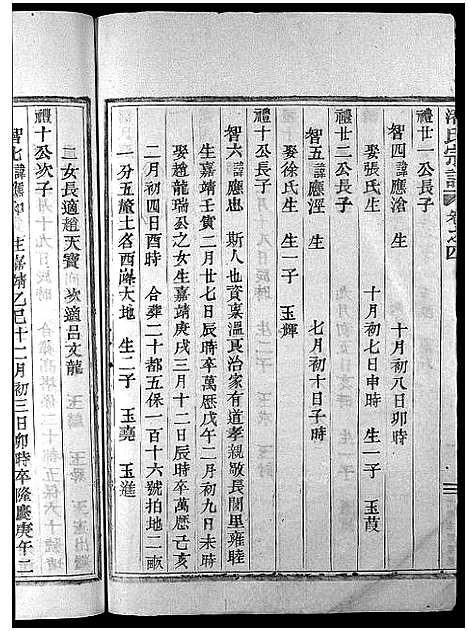 氏宗譜 卷之四
禮廿一公長子
智四 諱應滄 生 十月初八日卯時
娶張氏生 十月初七日申時 生一子 玉葭
禮廿二公長子
智五 諱應涇 生 七月初十日子時
娶徐氏生 生一子 玉輝
智六 諱應忠 斯人也資稟溫良治家有道孝親敬長閭里雍睦
生嘉靖壬寅二月廿七日辰時卒萬歷戊午二月初九日未時
娶趙龍瑞公之女生嘉靖庚戌三月十二日辰時卒萬歷己亥
二月初四日酉時 合葬二十都五保一百十六號拍地二畝
一分五釐土名西湪大地 生二子 玉堯 玉進
二女長適趙天寶 次適呂文龍
禮十公次子
智七 諱應 生嘉靖乙巳十二月初三日卯時卒隆慶庚午二